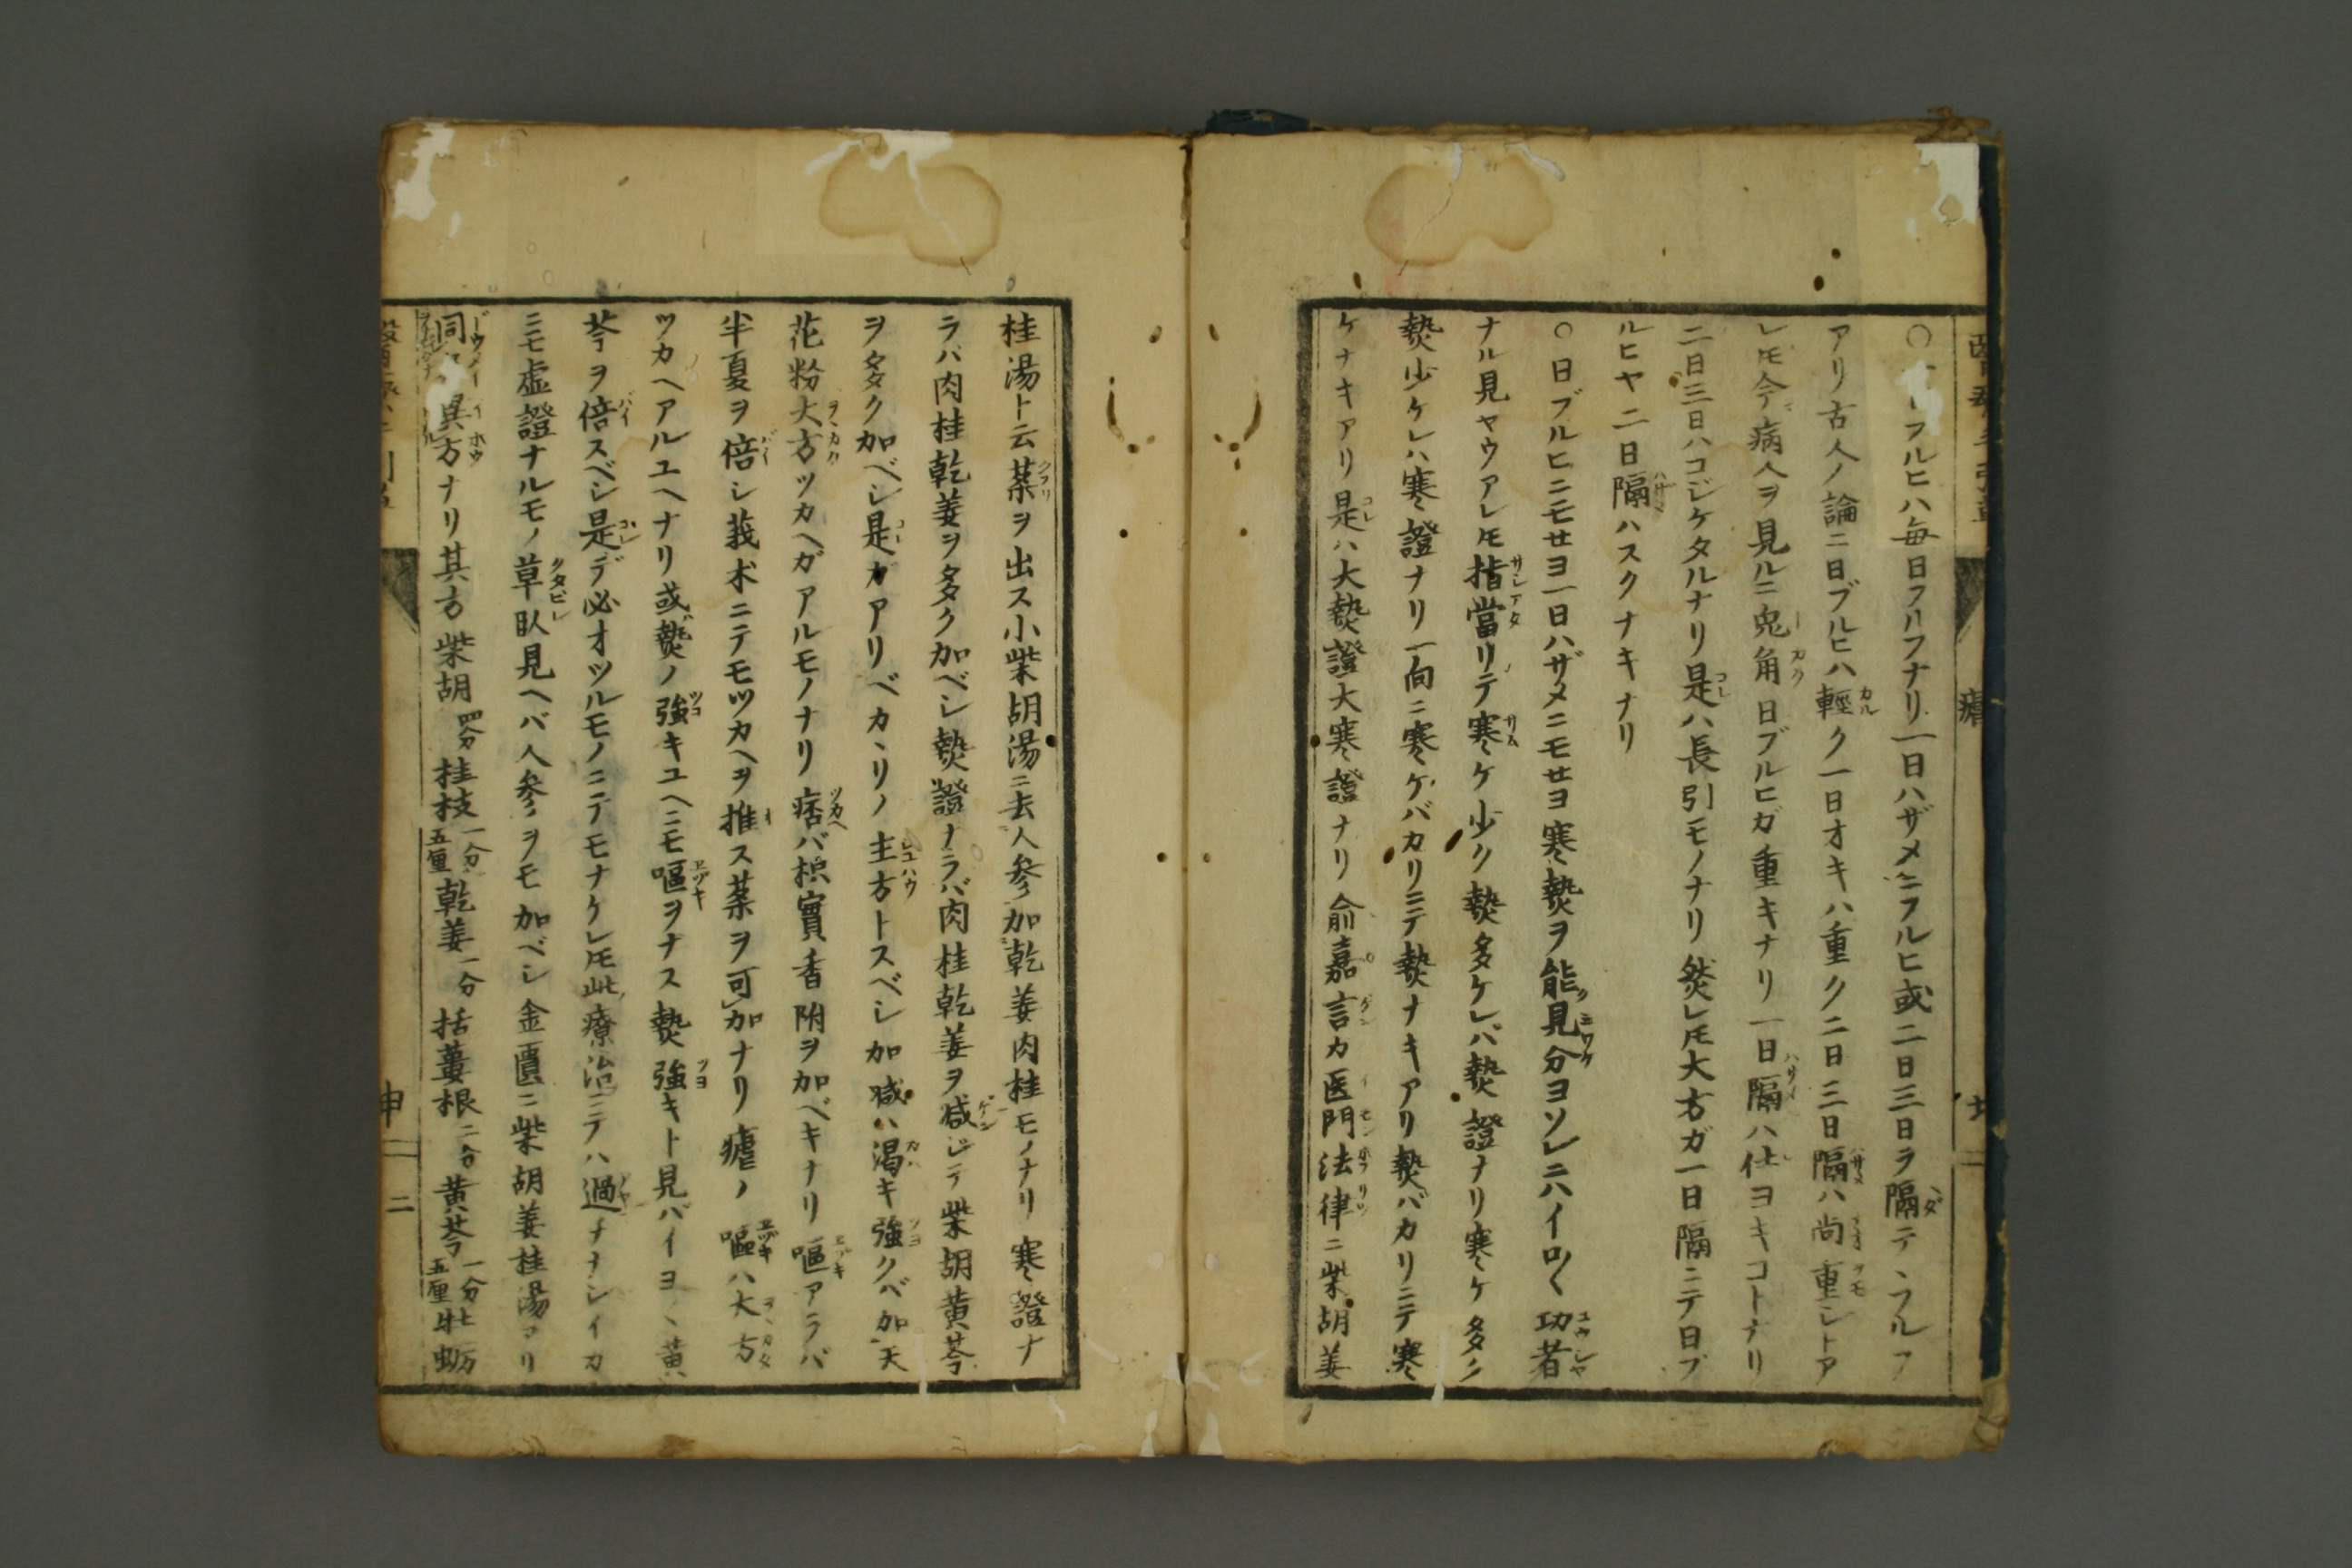 フルヒハ毎日フルフナリ一日ハザメニフルヒ或二日三日ヲ隔テヽフルフ
アリ古人ノ論ニ日ブルヒハ輕ク一日オキハ重ク二日三日隔ハ尚重シトア
レ𪜈今病人ヲ見ルニ兎角日ブルヒガ重キナリ一日隔ハ仕ヨキコトナリ
二日三日ハコジケタルナリ是ハ長引モノナリ然レ𪜈大方ガ一日隔ニテ日ブ
ルヒヤ二日隔ハスクナキナリ
○日ブルヒニモセヨ一日ハザメニモセヨ寒熱ヲ能見分ヨソレニハイロ〱功者
ナル見ヤウアレ𪜈指當リテ寒ケ少ク熱多ケレバ熱證ナリ寒ケ多ク
熱少ケレハ寒證ナリ一向ニ寒ケバカリニテ熱ナキアリ熱バカリニテ寒
ケナキアリ是ハ大熱證大寒證ナリ俞嘉言カ医門法律ニ柴胡姜
瘧
桂湯ト云薬ヲ出ス小柴胡湯ニ去人参加乾姜肉桂モノナリ寒證ナ
ラバ肉桂乾姜ヲ多ク加ベシ熱證ナラバ肉桂乾姜ヲ减ジテ柴胡黄芩
ヲ多ク加ベシ是ガアリベカヽリノ主方トスベシ加减ハ渇キ強クバ加天
花粉大方ツカヘガアルモノナリ痞バ枳實香附ヲ加ベキナリ嘔アラバ
半夏ヲ倍シ莪朮ニテモツカヘヲ推ス薬ヲ可加ナリ瘧ノ嘔ハ大方
ツカヘアルユヘナリ或熱ノ強キユヘニモ嘔ヲナス熱強キト見バイヨヽ黄
芩ヲ倍スベシ是デ必オツルモノニテモナケレ𪜈此療治ニテハ過チナシイカ
ニモ虚證ナルモノ草臥見ヘバ人参ヲモ加ベシ金匱ニ柴胡姜桂湯アリ
同 異方ナリ其方柴胡四分桂枝一分五厘乾姜一分括蔞根二分黄芩一分五厘牡蛎
二